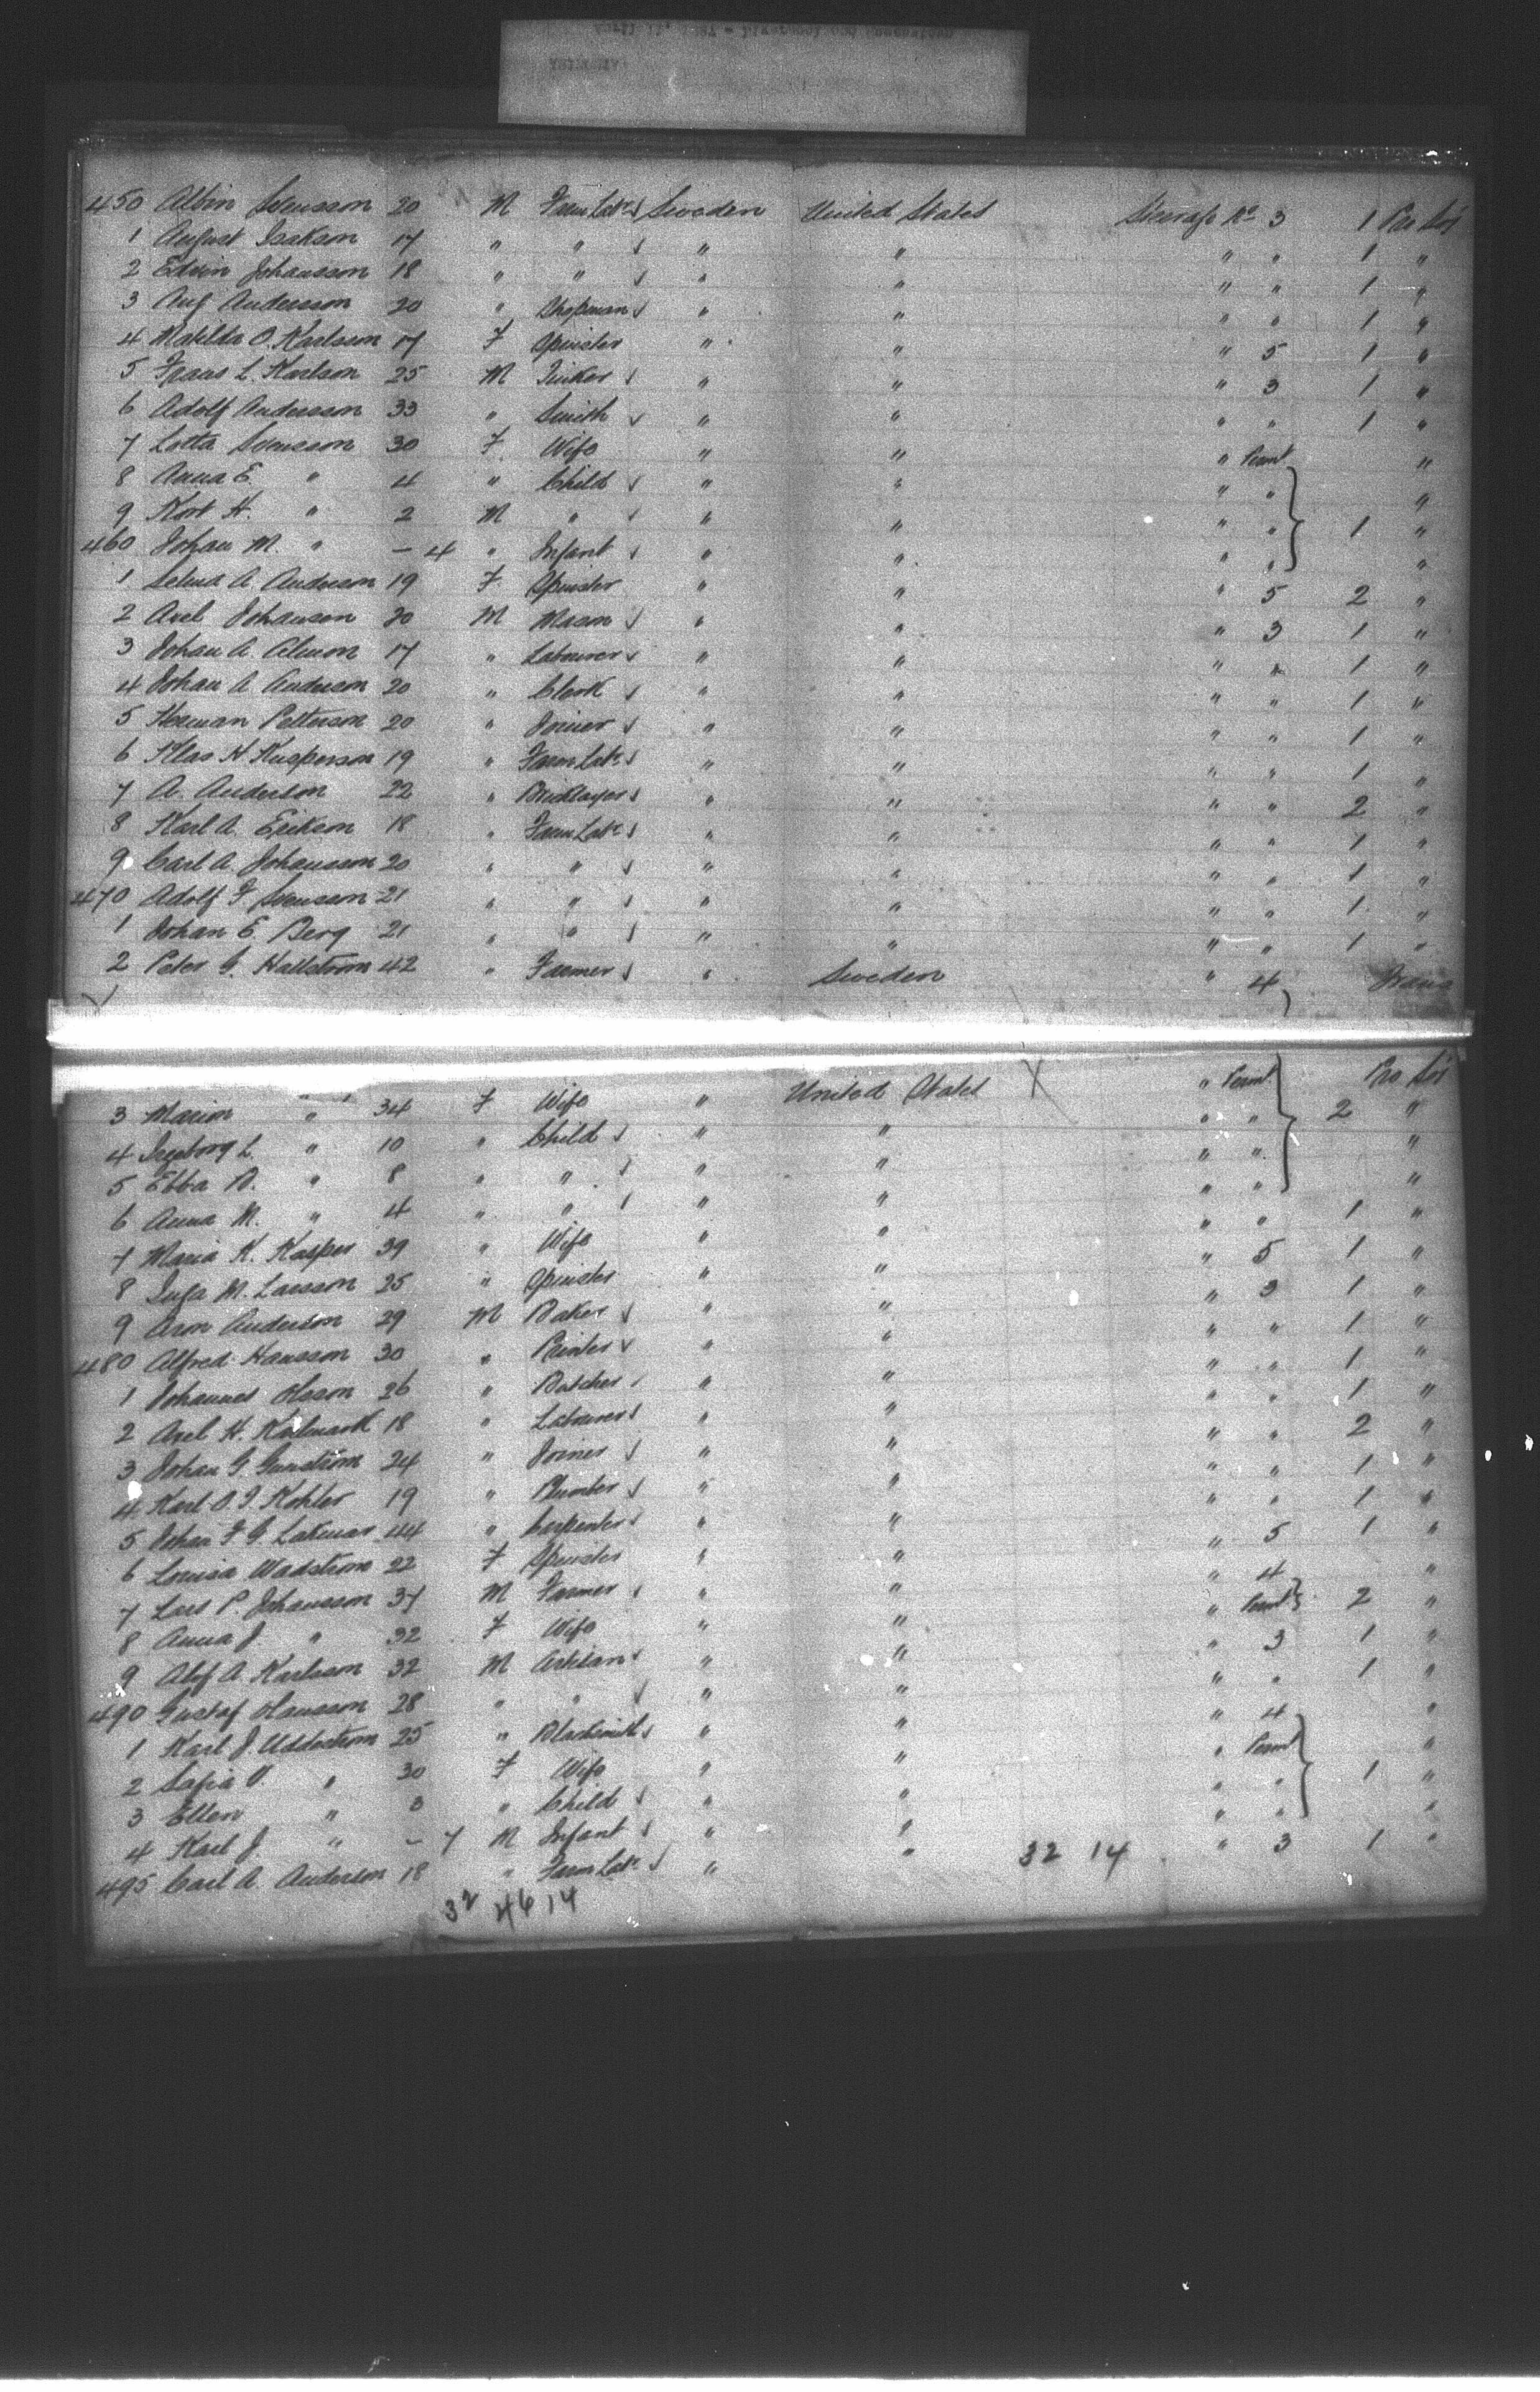 450 Albin Svensson 20 M Farm Labr Sweden United States Steerage No 3 1 Pro Soj
1 August Isakson 17 " " " " " " 1 "
2 Edvin Johansson 18 " " " " " " 1 "
3 Aug Andersson 20 " Shopman " " " " 1 "
4 Matilda O. Karlsson 17 F Spinster " " " 5 1 "
5 Frans L. Karlson 25 M " " " 3 1 "
6 Adolf Andersson 33 " Smith " " " " 1 "
7 Lotta Svensson 30 F Wife " " " Permt "
8 Anna E. " 4 " Child " " " " "
9 Kort H. " 2 M " " " " " 1 "
460 Johan M. " - 4 " Infant " " " " "
1 Selma A. Anderson 19 F Spinster " " " 5 2 "
2 Axel Johanson 20 M Mason " " " 3 1 "
3 Johan A. 17 " Labourer " " " " 1 "
4 Johan A Anderson 20 " Clerk " " " " 1 "
5 Herman Petterson 20 " Joiner " " " " 1 "
6 Klas H Kasperson 19 " Farm Labr " " " " 1 "
7 A. Anderson 22 " Bricklayer " " " " 2 "
8 Karl A. Erikson 18 " Farm Labr " " " " 1 "
9 Carl A. Johansson 20 " " " " " " 1 "
470 Adolf F Svenson 21 " " " " " " 1 "
1 Johan E. Berg 21 " " " " " " 1 "
2 Peter G. Hallstrom 42 " Farmer " Sweden " 4
3 " 34 F Wife " United States " Permt Pro Soj
4 Ingeborg L. " 10 " Child " " " " 2 "
5 Ebba " 8 " " " " " " "
6 Anna M. " 4 " " " " " " "
7 Maria K. Kasper 39 " Wife " " " " 1 "
8 Inga M. Larsson 25 " Spinster " " " 5 1 "
9 Aron Anderson 29 M Baker " " " 3 1 "
480 Alfred Hansson 30 " " " " " 1 "
1 Johannes Olsson 26 " Butcher " " " " 1 "
2 Axel H. 18 " Labourer " " " " 1 "
3 Johan G. 24 " Joiner " " " " 2 "
4 Karl O. J. Kohler 19 " Plumber " " " " 1 "
5 Johan F G. 44 " Carpenter " " " " 1 "
6 Lovisa Wadstrom 22 F Spinster " " " 5 1 "
7 Lars P. Johansson 37 M Farmer " " " 4 "
8 Anna J. " 32 F Wife " " " Permt 2 "
9 Alof A. Karlsson 32 M Artisan " " " 3 1 "
490 Gustaf 28 " " " " " " 1 "
1 Karl J. Uddstrom 25 " Blacksmith " " " 4 "
2 Safia V. " 30 F Wife " " " Permt "
3 Ellen " 3 " Child " " " " 1 "
4 Karl J. " - 7 M Infant " " " " "
495 Carl A. Anderson 18 " Farm Labr " " 32 14 " 3 1 "
32 46 14